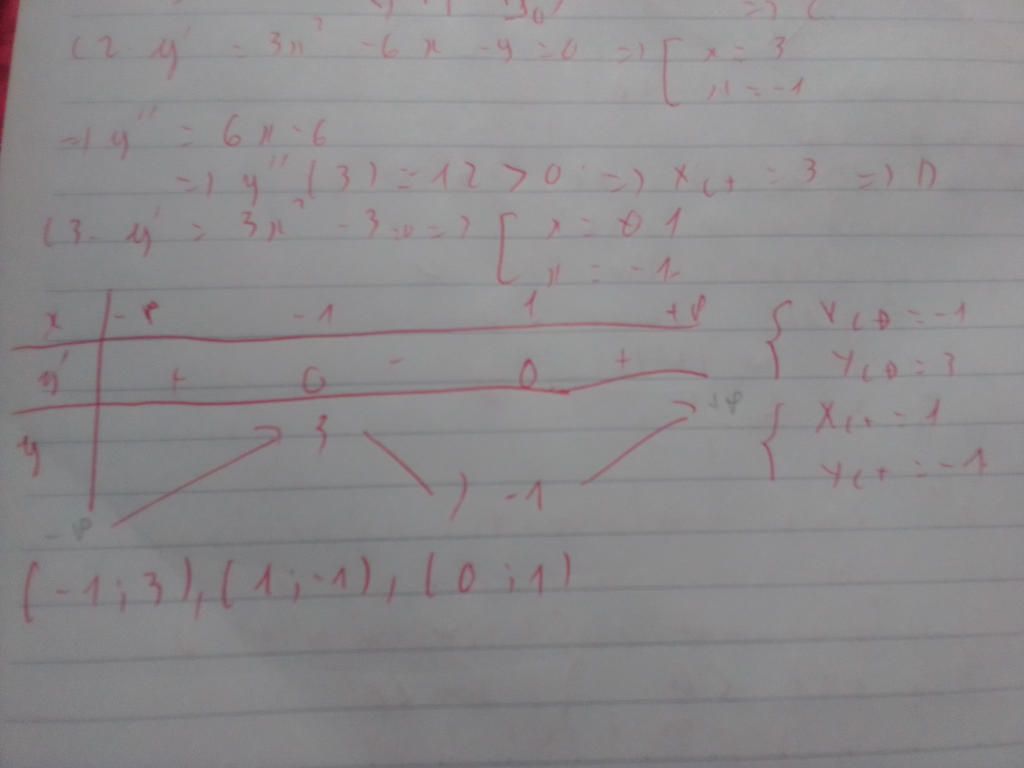 => C
C2. y' = 3x² - 6x - 9 = 0 => [ x = 3
x = -1
=> y'' = 6x - 6
=> y''(3) = 12 > 0 => x_CT = 3 => D
C3. y' = 3x² - 3 = 0 => [ x = 1
x = -1
x -∞ -1 1 +∞ { x_CĐ = -1
y' + 0 - 0 + y_CĐ = 3
y 3 +∞ { x_CT = 1
-∞ -1 y_CT = -1
(-1; 3), (1; -1), (0; 1)